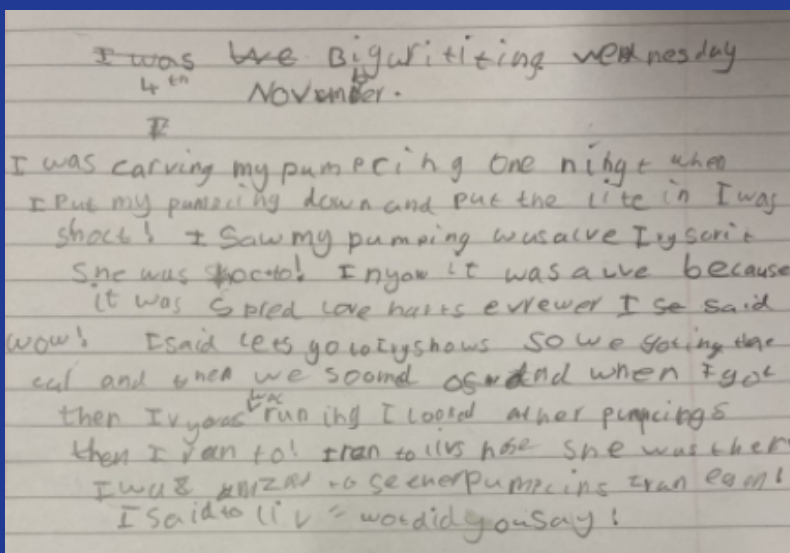 I was we Big writiting wednesday
4th November.
I
I was carving my pumpcing one nihgt when
I Put my pumpcing down and put the lite in I was
shoct! I Saw my pumping wus alve
She was shoc to! I nyow it was a live because
it was Spred love harts evrewer I se said
wow! I said lets go to Ivys hows So we
and when we soomd and when I got
then Ivy was runing I looed at her pumpcings
then I ran to! I ran to livs hose She was ther
I was to se ener pumpcins
I Said to liv wot did you say!